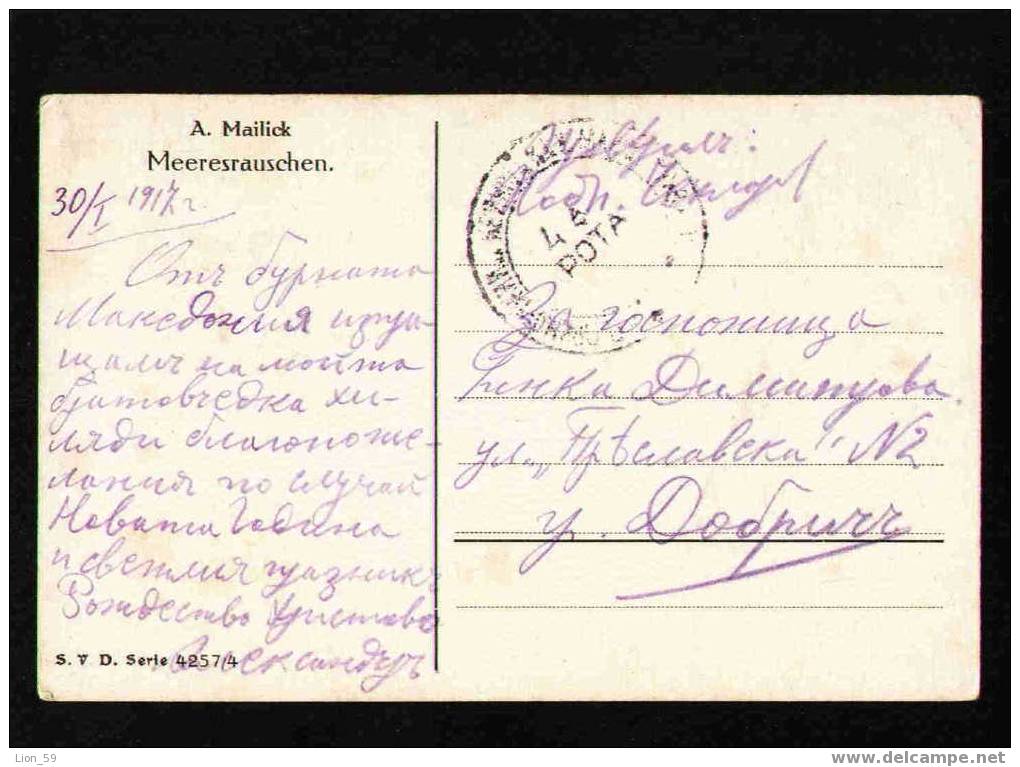 A. Mailick
Meeresrauschen.
30/I 1917 г
Отъ бурната
Македония изпра-
щамъ на мойта
братовчедка хи-
ляди благопоже-
лания по случай
Новата Година
и светлия празникъ
Рождество Христово
Александъръ
S. V D. Serie 4257/4
4
РОТА
За госпожица
Пенка Димитрова
ул. „Прѣславска" №2
гр. Добричъ
Lion_59
www.delcampe.net